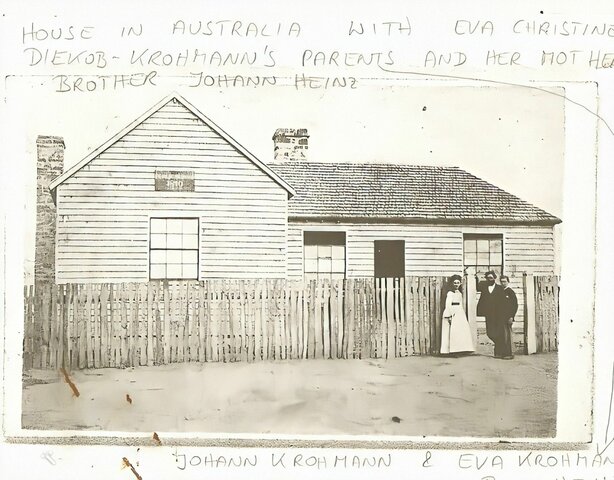 HOUSE IN AUSTRALIA WITH EVA CHRISTINE
DIEKOB-KROHMANN'S PARENTS AND HER MOTHER
BROTHER JOHANN HEINZ
JOHANN KROHMANN & EVA KROHMAN